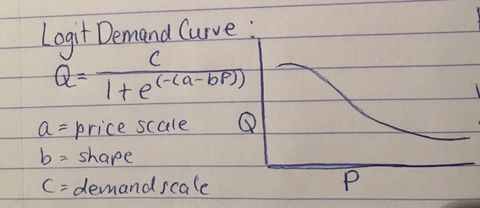 Logit Demand Curve :
Q = C / 1 + e^(-(a-bP))
a = price scale
b = shape
C = demand scale
Q
P